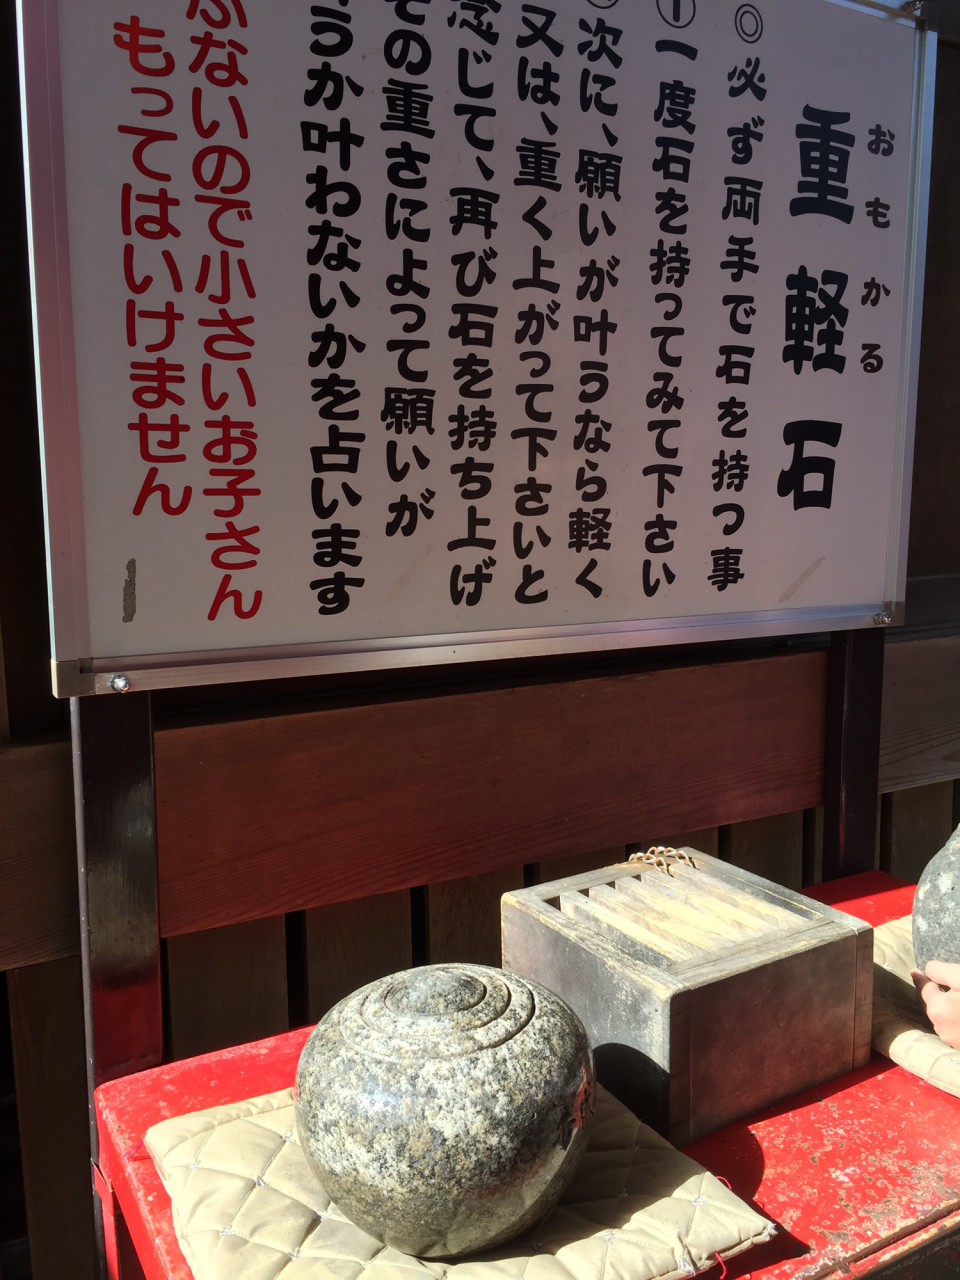 おもかる
重軽石
◎必ず両手で石を持つ事
①一度石を持ってみて下さい
次に、願いが叶うなら軽く
又は、重く上がって下さいと
念じて、再び石を持ち上げ
その重さによって願いが
うか叶わないかを占います
ないので小さいお子さん
もってはいけません